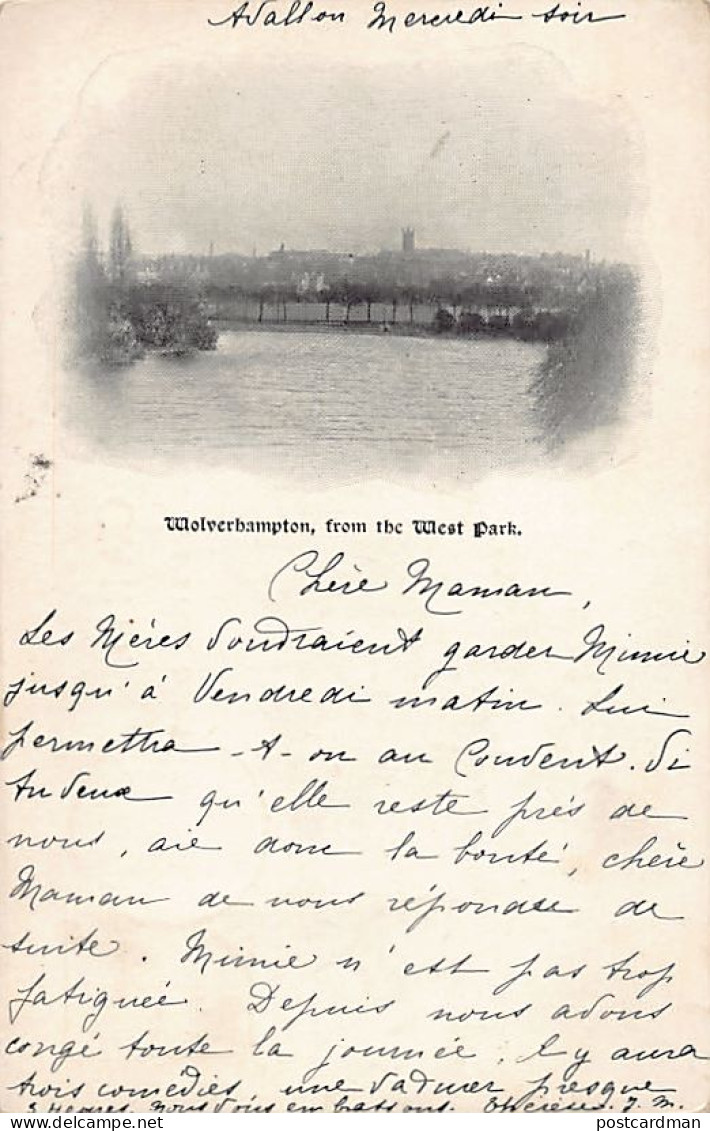 Avallon Mercredi soir
Wolverhampton, from the West Park.
Chère Maman,
Les Mières voudraient garder Mimie
jusqu'à Vendredi matin. Lui
permettra-t-on au Couvent. Si
tu veux qu'elle reste près de
nous, aie donc la bonté, chère
Maman de nous répondre de
suite. Mimie n'est pas trop
fatiguée. Depuis nous avons
congé toute la journée, il y aura
trois comédies, une durer presque
3 heures. Nous vous embrassons. Thérèse. J. M.
postcardman